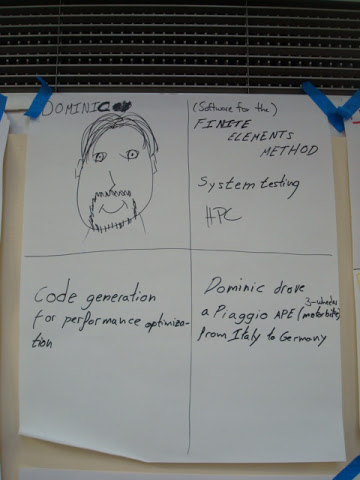 DOMINIC
(Software for the)
FINITE
ELEMENTS
METHOD
System testing
HPC
Code generation
for performance optimiza-
tion
Dominic drove
3-wheeler
a Piaggio APE (motorbike)
from Italy to Germany